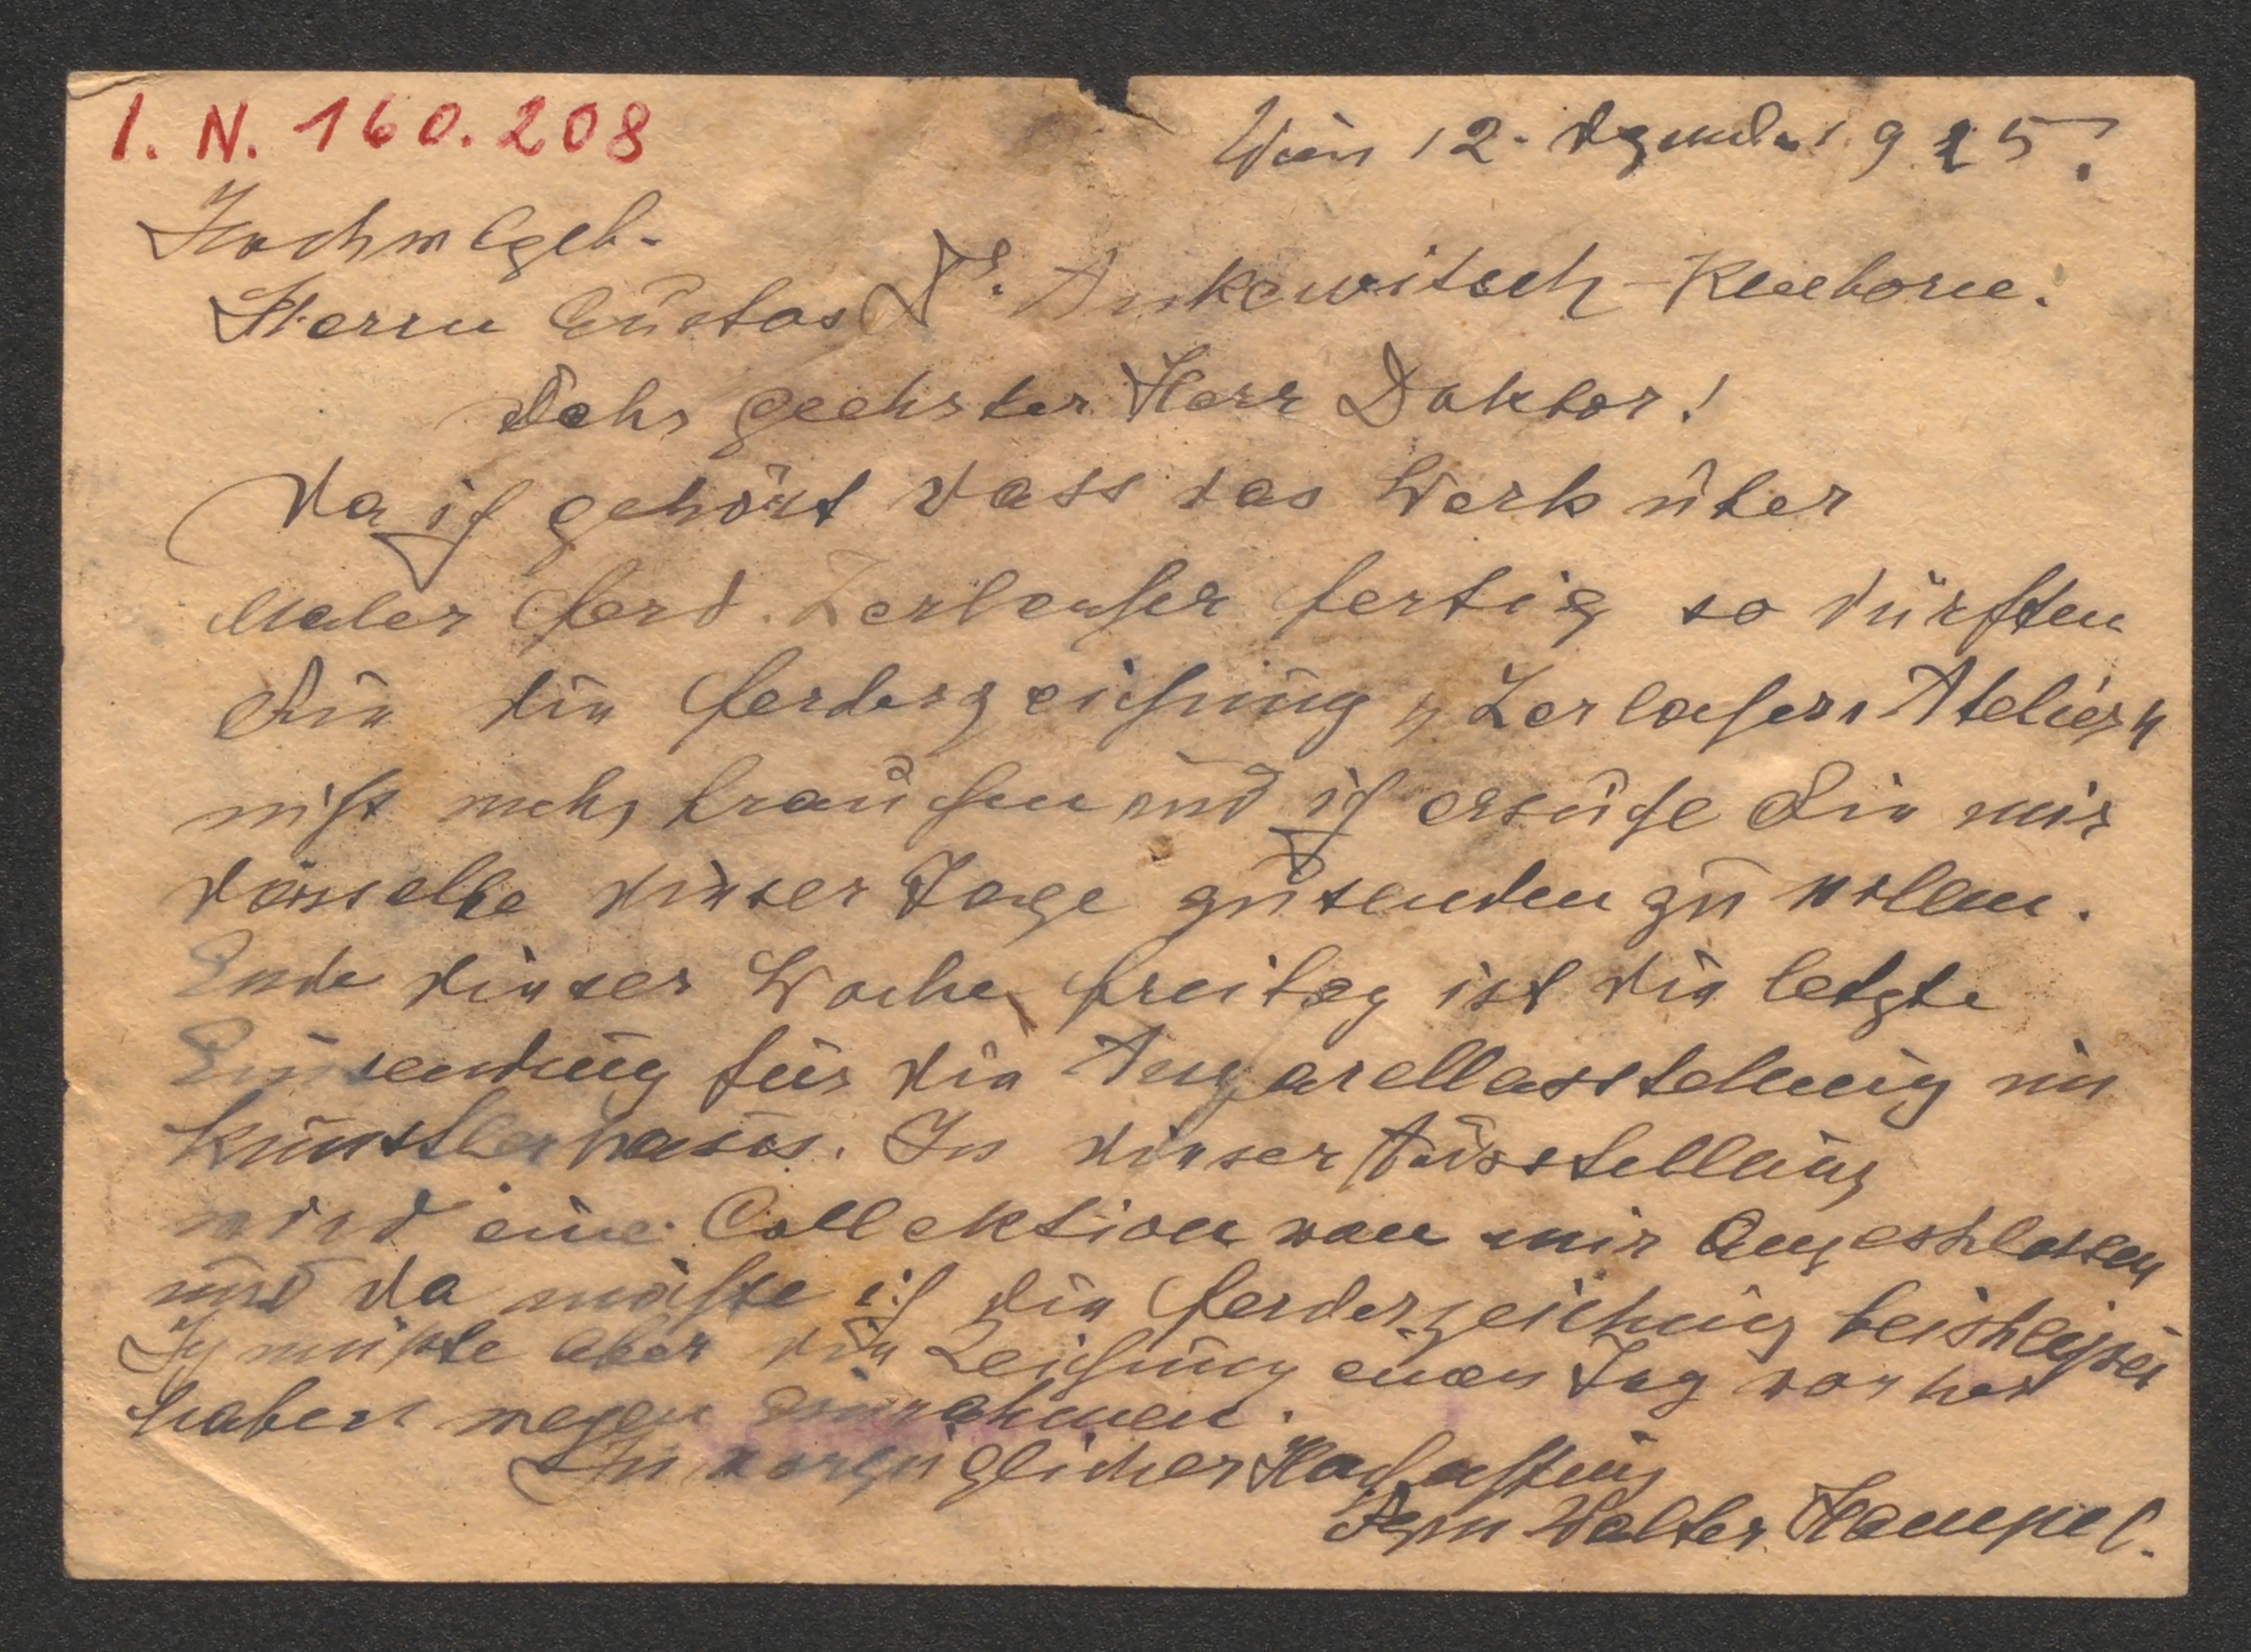 I. N. 160.208
Wien 12. Dezember 1925.
Hochwlgeb.
Herrn Gustav Dr. Ankewitsch-Kleehoven.
Sehr geehrter Herr Doktor!
Da ich gehört dass das Werk über
Maler Ferd. Zerlacher fertig so dürften
Sie die Federzeichnung „Zerlachers Atelier"
nicht mehr brauchen und ich ersuche Sie mir
dieselbe dieser Tage zusenden zu wollen.
Ende dieser Woche Freitag ist die letzte
Einsendung für die Aquarellausstellung im
Künstlerhause. In dieser Ausstellung
wird eine Collektion von mir angeschlossen
und da möchte ich die Federzeichnung beischließen
Ich müßte aber die Zeichnung einen Tag vorher
haben wegen einrahmen.
In vorzüglicher Hochachtung
Walter Hampel.